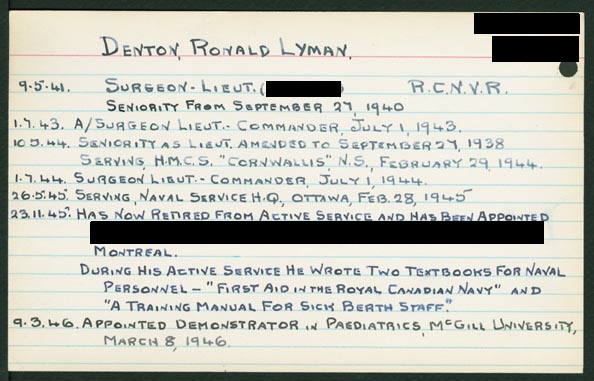 DENTON, RONALD LYMAN.
9.5.41. SURGEON-LIEUT. ( ) R.C.N.V.R.
SENIORITY FROM SEPTEMBER 27, 1940
1.7.43. A/SURGEON LIEUT.-COMMANDER, JULY 1, 1943.
10.5.44. SENIORITY AS LIEUT. AMENDED TO SEPTEMBER 27, 1938
SERVING, H.M.C.S. "CORNWALLIS", N.S., FEBRUARY 29, 1944.
1.7.44. SURGEON LIEUT.-COMMANDER, JULY 1, 1944.
26.5.45. SERVING, NAVAL SERVICE H.Q., OTTAWA, FEB. 28, 1945
23.11.45. HAS NOW RETIRED FROM ACTIVE SERVICE AND HAS BEEN APPOINTED
MONTREAL.
DURING HIS ACTIVE SERVICE HE WROTE TWO TEXTBOOKS FOR NAVAL
PERSONNEL - "FIRST AID IN THE ROYAL CANADIAN NAVY" AND
"A TRAINING MANUAL FOR SICK BERTH STAFF."
9.3.46. APPOINTED DEMONSTRATOR IN PAEDIATRICS, MCGILL UNIVERSITY,
MARCH 8, 1946.